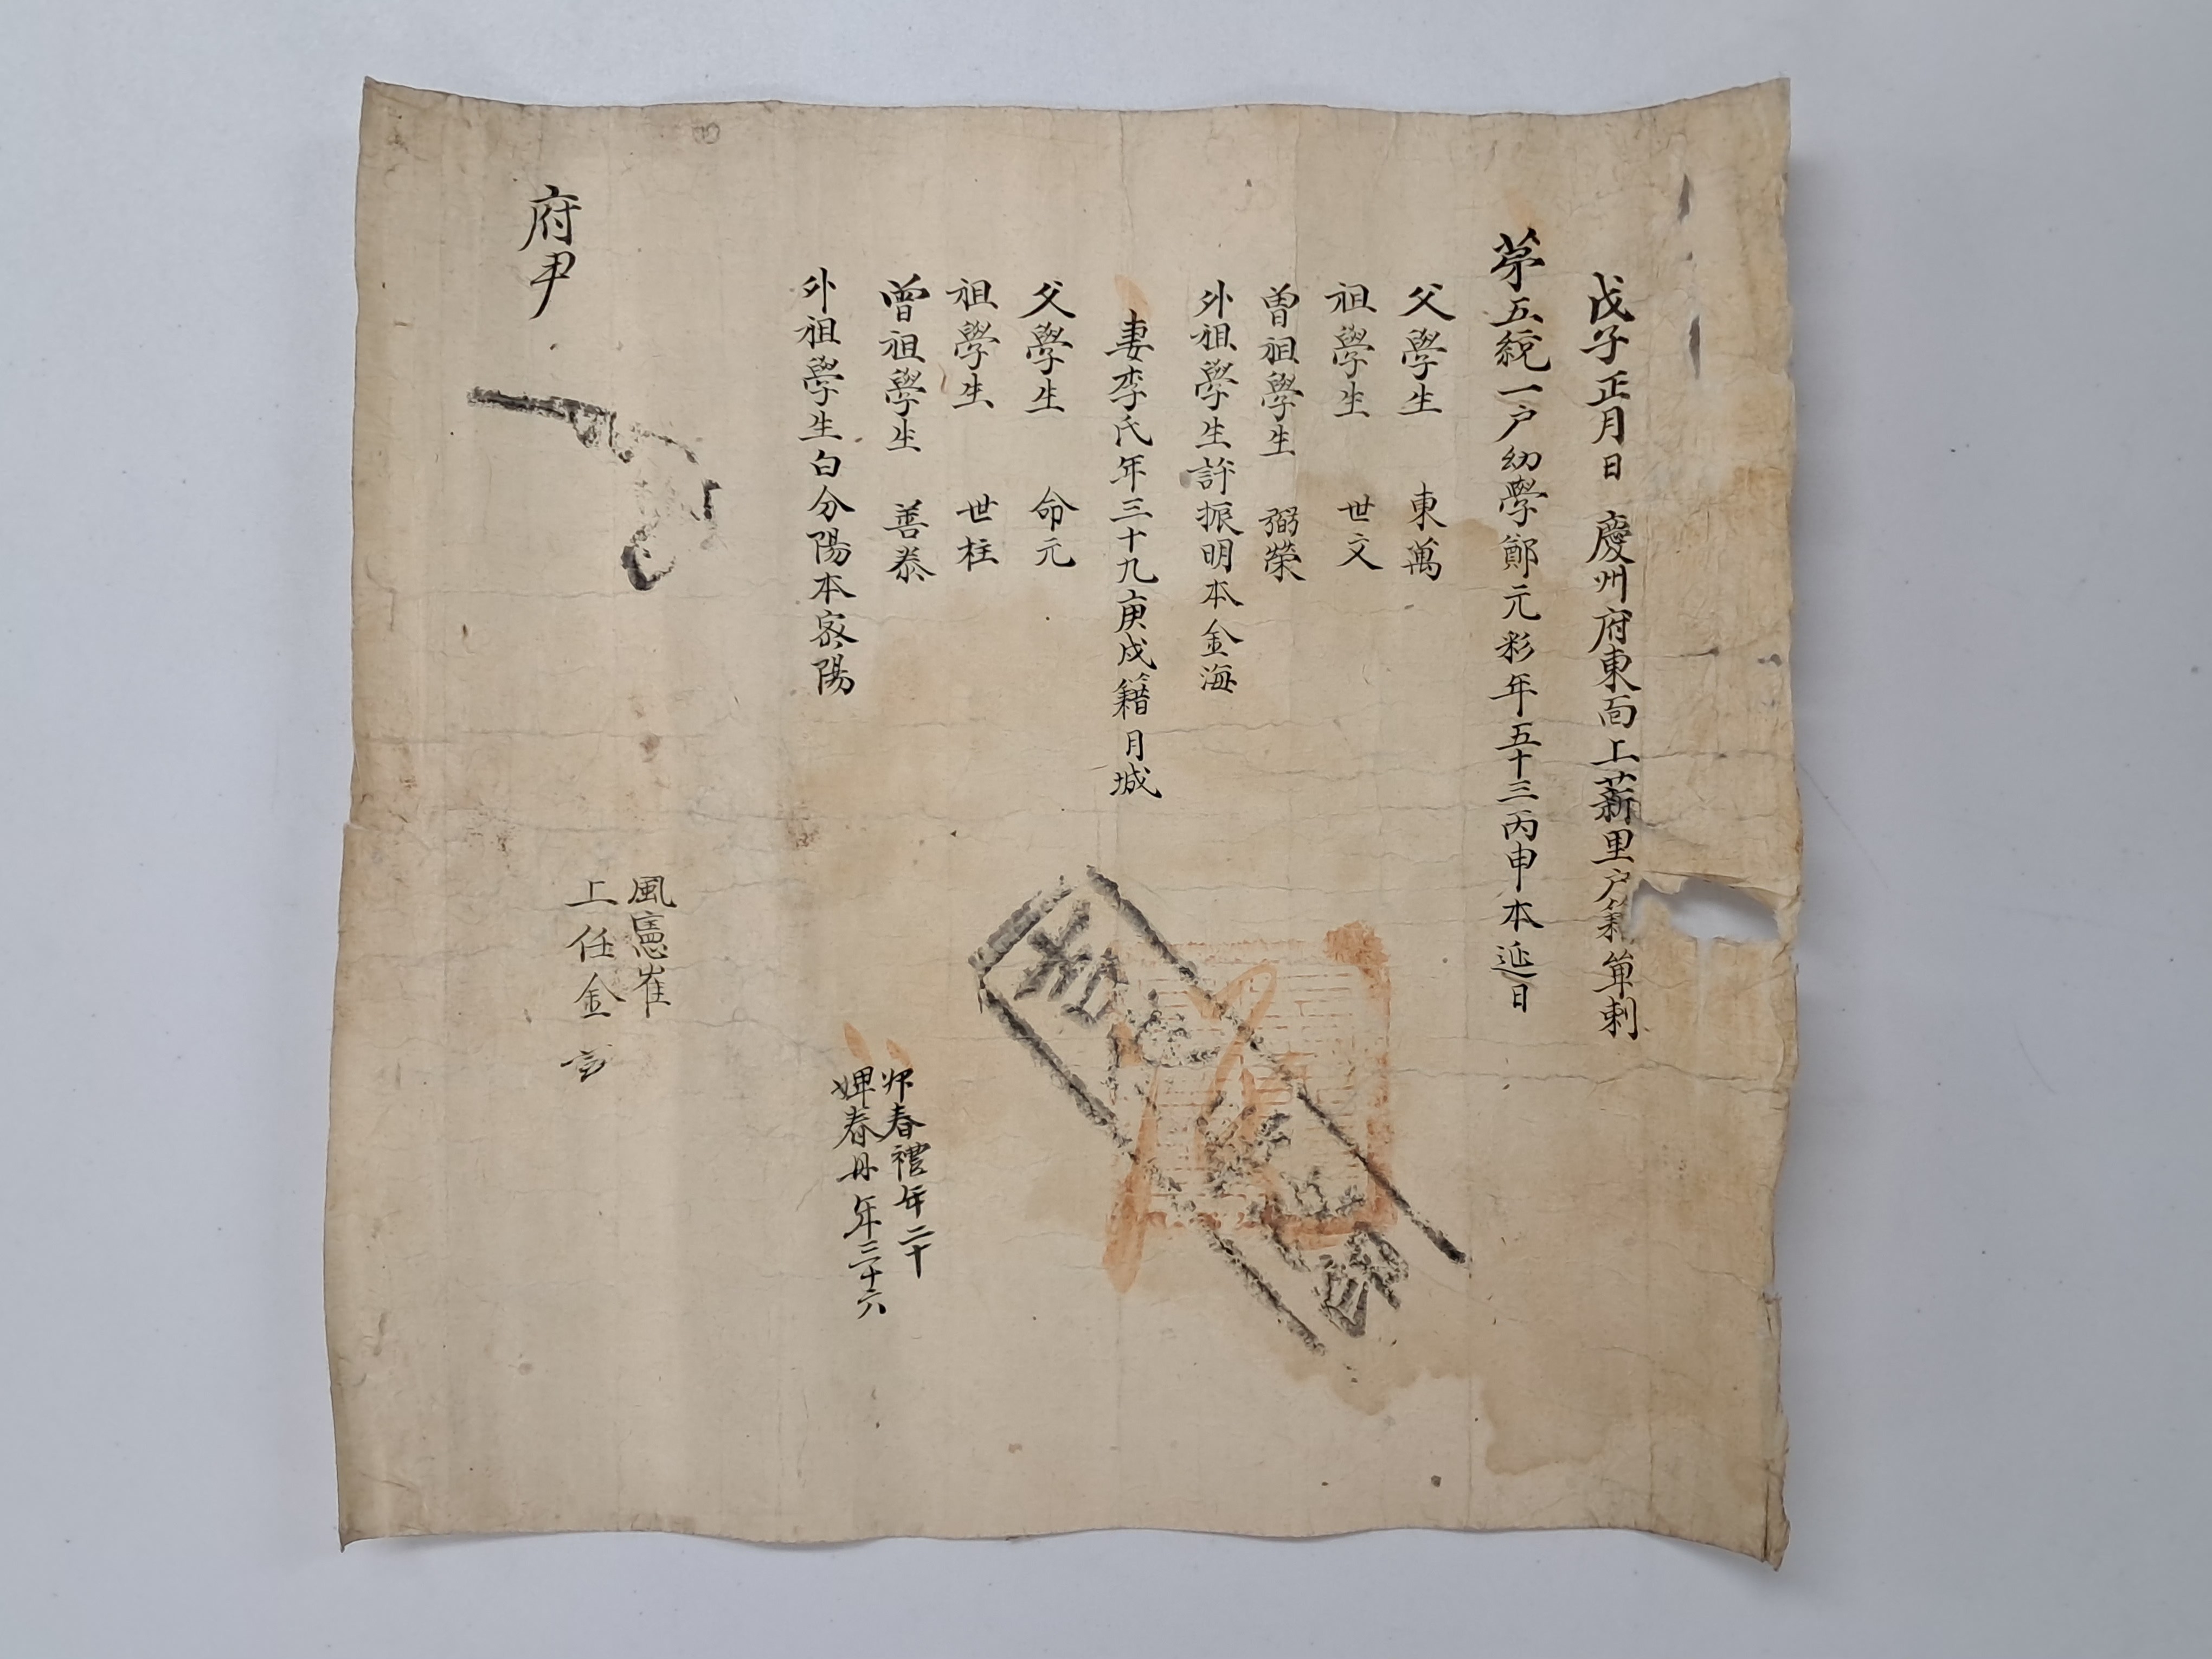 戊子正月日 慶州府東面上薪里户籍單刺
苐五統一户幼學鄭元彩年五十三丙申本延日
父學生 東萬
祖學生 世文
曽祖學生 弼榮
外祖學生許振明本金海
妻李氏年三十九庚戌籍月城
父學生 命元
祖學生 世柱
曽祖學生 善泰
外祖學生白分陽本密陽
春禮年二十
婢春丹年三十六
風憲崔
上任金
府尹